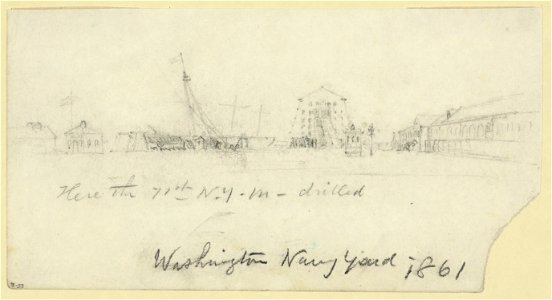 Here the 71st N.Y.M - drilled
Washington Navy Yard 1861